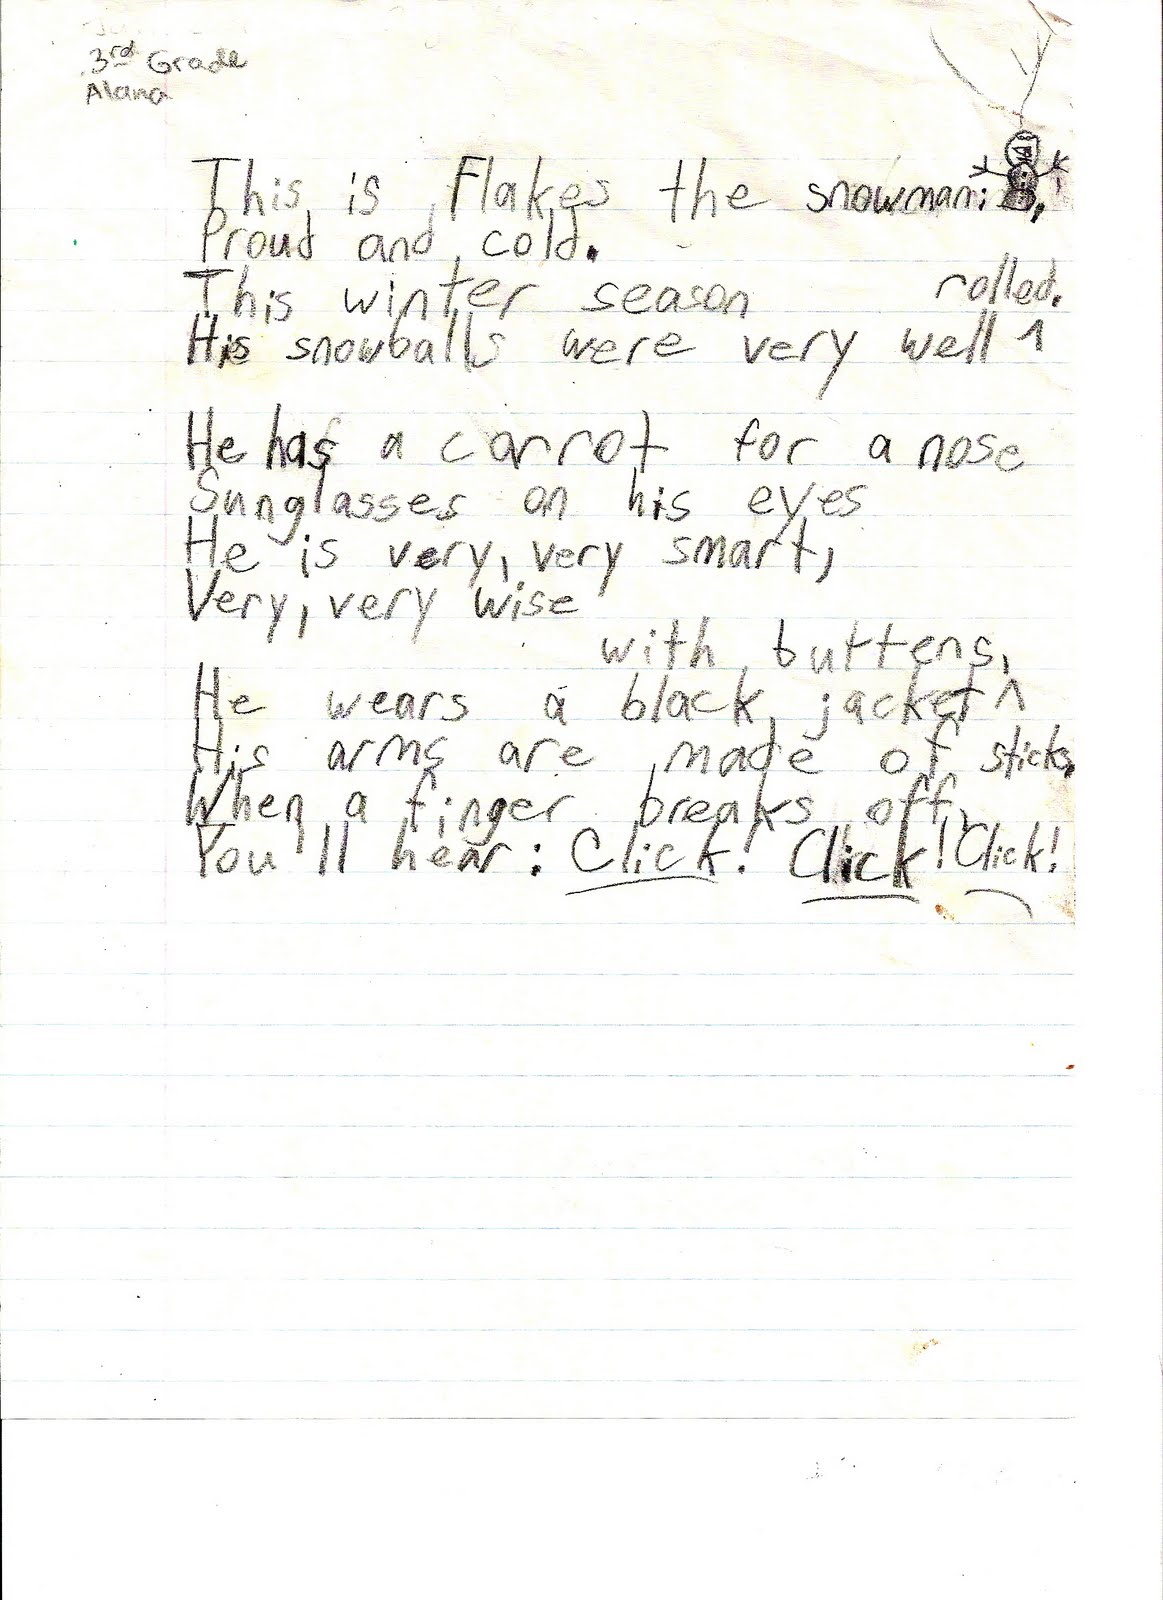 3rd Grade
Alana
This is Flakes the snowman:,
Proud and cold.
This winter season
His snowballs were very well ^ rolled.
He has a carrot for a nose
Sunglasses on his eyes
He is very, very smart,
Very, very wise
He wears a black jacket ^ with buttens,
His arms are made of sticks,
When a finger breaks off,
You'll hear: Click! Click! Click!